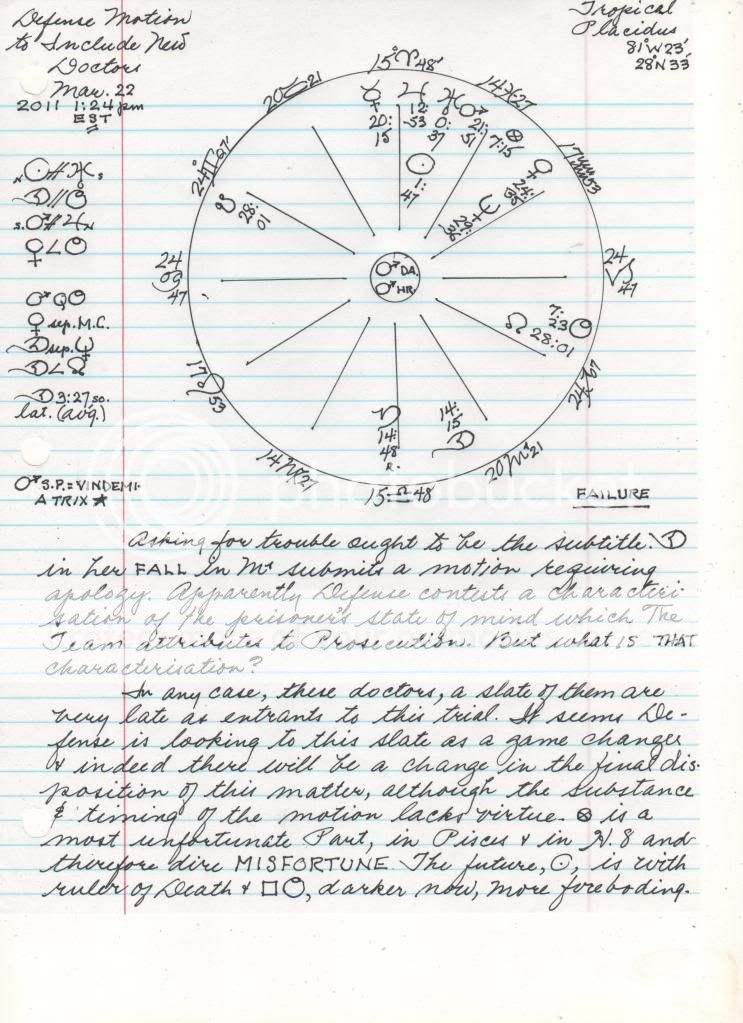 Defense Motion
to Include New
Doctors
Mar. 22
2011 1:24 pm
EST
Tropical
Placidus
81°W23'
28°N33'
15°♈48'
14♓27
17♒53
24♑47
24♐07
20♏21
15♎48
14♍27
17♌53
24♋47
24♊07'
20♉21
☿ 20:15
♃ 12:53
♅ 0:37
♂ 21:51
☉ 1:47
⊗ 7:15
♀
♆
☋ 28:01
♂ DA.
♂ HR.
7:23
☊ 28:01
14:15 ☽
♄ 14:48 R.
☽ sep. ♆
♀ sep. M.C.
☽ 3:27 so.
lat. (avg.)
♂ S.P. = VINDEMI-
ATRIX ★
FAILURE
Asking for trouble ought to be the subtitle. ☽
in her FALL in ♏ submits a motion requiring
apology. Apparently Defense contests a characteri-
sation of the prisoner's state of mind which The
Team attributes to Prosecution. But what IS THAT
characterisation?
In any case, these doctors, a slate of them are
very late as entrants to this trial. It seems De-
fense is looking to this slate as a game changer
& indeed there will be a change in the final dis-
position of this matter, although the substance
& timing of the motion lacks virtue. ⊗ is a
most unfortunate Part, in Pisces & in H 8 and
therefore dire MISFORTUNE. The future, ☉, is with
ruler of Death & □ , darker now, more foreboding.